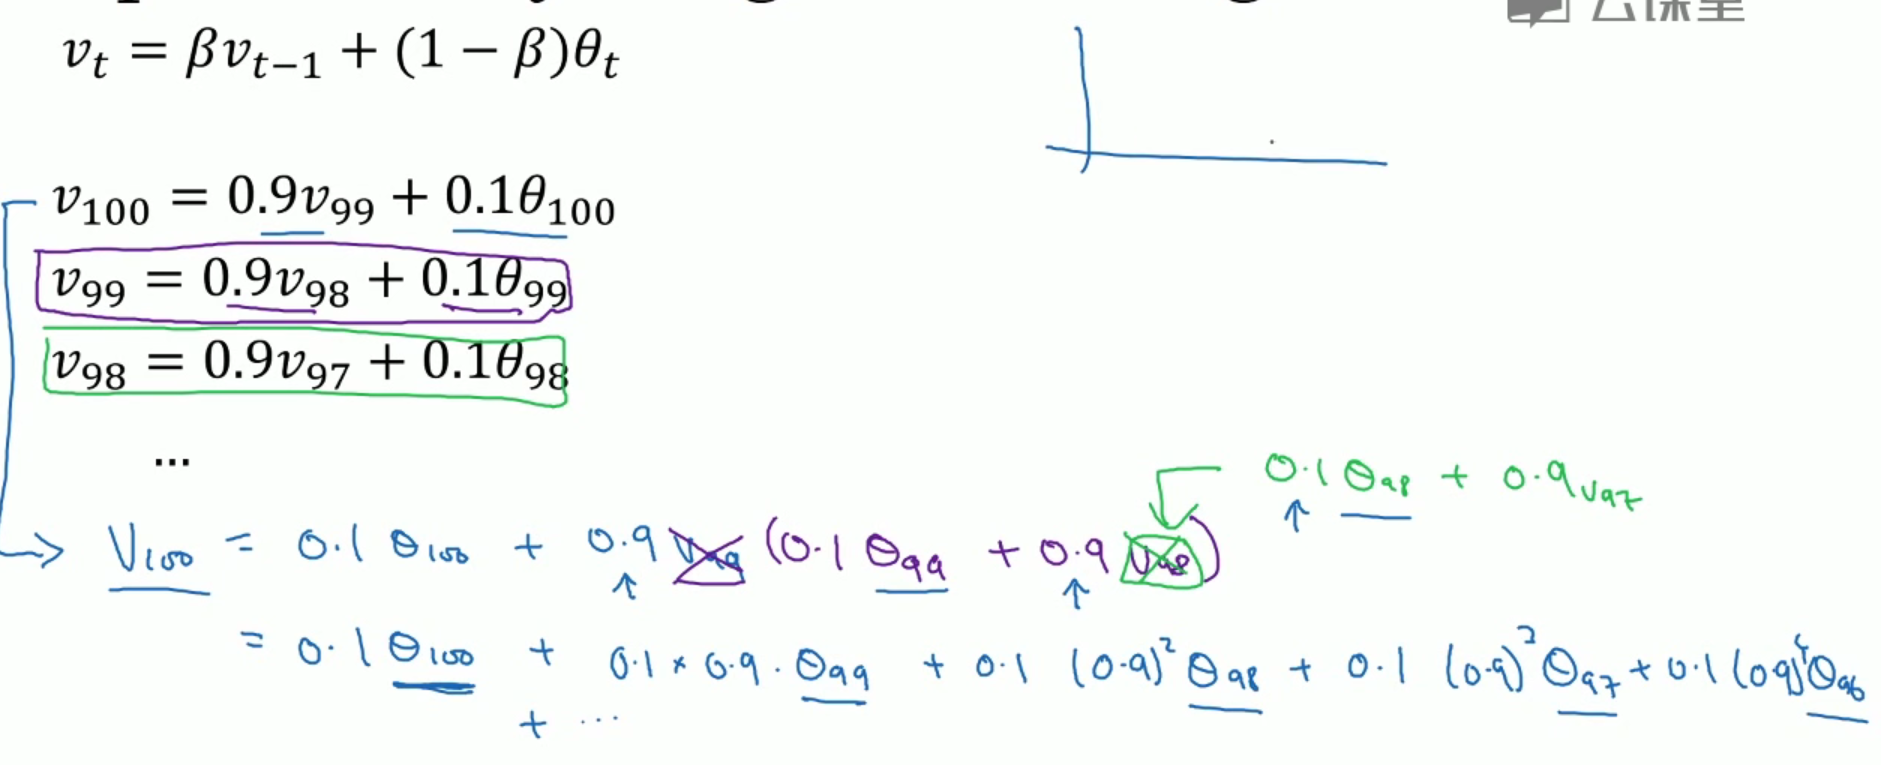 云课堂
vₜ = βvₜ₋₁ + (1 − β)θₜ
v₁₀₀ = 0.9v₉₉ + 0.1θ₁₀₀
v₉₉ = 0.9v₉₈ + 0.1θ₉₉
v₉₈ = 0.9v₉₇ + 0.1θ₉₈
...
0.1 θ₉₈ + 0.9 v₉₇
V₁₀₀ = 0.1 θ₁₀₀ + 0.9 v₉₉ (0.1 θ₉₉ + 0.9 v₉₈)
= 0.1 θ₁₀₀ + 0.1 × 0.9 · θ₉₉ + 0.1 (0.9)² θ₉₈ + 0.1 (0.9)³ θ₉₇ + 0.1 (0.9)⁴ θ₉₆
+ ...